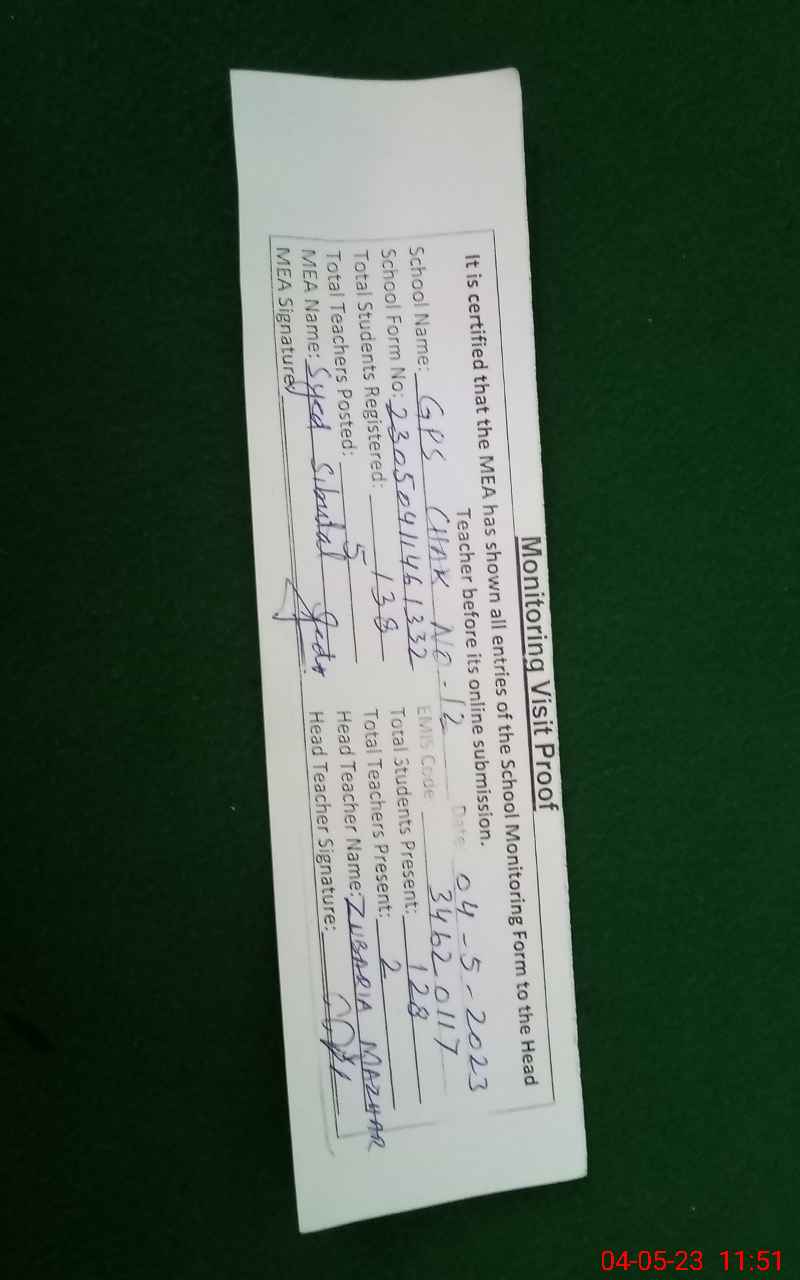 Monitoring Visit Proof
It is certified that the MEA has shown all entries of the School Monitoring Form to the Head
Teacher before its online submission.
Date 04-5-2023
School Name: GPS CHAK NO-12 EMIS Code 34620117
School Form No: 23050411461332 Total Students Present: 128
Total Students Registered: 138 Total Teachers Present: 2
Total Teachers Posted: 5 Head Teacher Name: ZUBARIA MAZHAR
MEA Name: Syed Head Teacher Signature:
MEA Signature
04-05-23 11:51